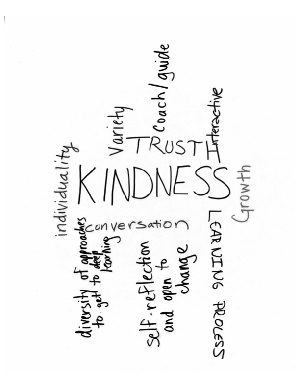 individuality
Variety
Coach/guide
Interactive
TRUST
KINDNESS
Growth
conversation
diversity of approaches
to get to deep
learning
self-reflection
and open to
change
LEARNING PROCESS